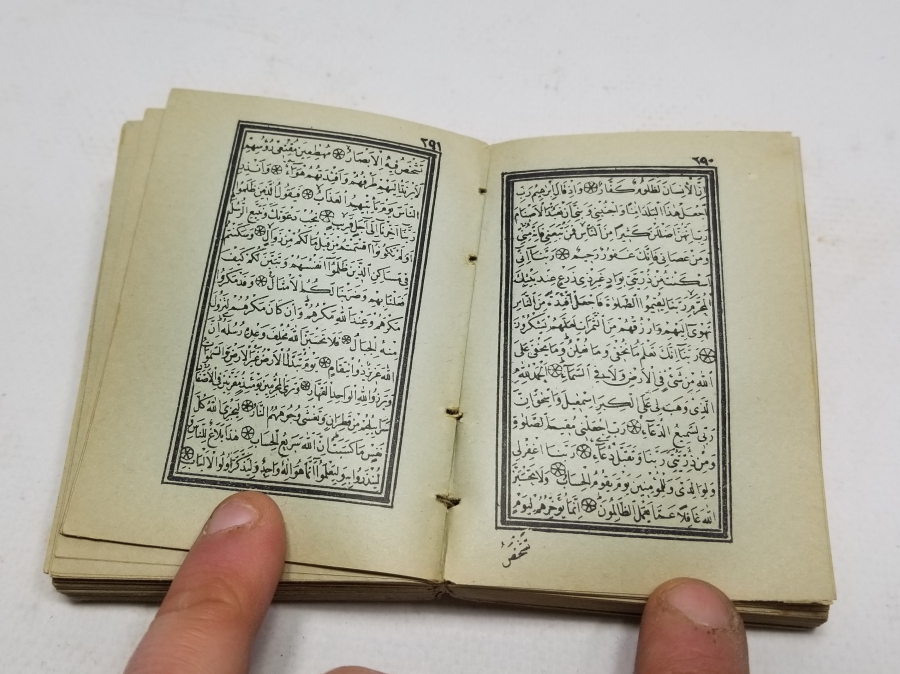 ٢٩٠
اِنَّ الْاِنْسَانَ لَظَلُومٌ كَفَّارٌ ۞ وَاِذْ قَالَ اِبْرٰهِيمُ رَبِّ
اجْعَلْ هٰذَا الْبَلَدَ اٰمِنًا وَاجْنُبْنِي وَبَنِيَّ اَنْ نَعْبُدَ الْاَصْنَامَ
رَبِّ اِنَّهُنَّ اَضْلَلْنَ كَثِيرًا مِنَ النَّاسِ فَمَنْ تَبِعَنِي فَاِنَّهُ مِنِّي
وَمَنْ عَصَانِي فَاِنَّكَ غَفُورٌ رَحِيمٌ ۞ رَبَّنَا اِنِّي
اَسْكَنْتُ مِنْ ذُرِّيَّتِي بِوَادٍ غَيْرِ ذِي زَرْعٍ عِنْدَ بَيْتِكَ
الْمُحَرَّمِ رَبَّنَا لِيُقِيمُوا الصَّلٰوةَ فَاجْعَلْ اَفْئِدَةً مِنَ النَّاسِ
تَهْوِي اِلَيْهِمْ وَارْزُقْهُمْ مِنَ الثَّمَرَاتِ لَعَلَّهُمْ يَشْكُرُونَ
۞ رَبَّنَا اِنَّكَ تَعْلَمُ مَا نُخْفِي وَمَا نُعْلِنُ وَمَا يَخْفٰى عَلَى
اللّٰهِ مِنْ شَيْءٍ فِي الْاَرْضِ وَلَا فِي السَّمَاءِ ۞ اَلْحَمْدُ لِلّٰهِ
الَّذِي وَهَبَ لِي عَلَى الْكِبَرِ اِسْمٰعِيلَ وَاِسْحٰقَ اِنَّ
رَبِّي لَسَمِيعُ الدُّعَاءِ ۞ رَبِّ اجْعَلْنِي مُقِيمَ الصَّلٰوةِ
وَمِنْ ذُرِّيَّتِي رَبَّنَا وَتَقَبَّلْ دُعَاءِ ۞ رَبَّنَا اغْفِرْ لِي
وَلِوَالِدَيَّ وَلِلْمُؤْمِنِينَ يَوْمَ يَقُومُ الْحِسَابُ ۞ وَلَا تَحْسَبَنَّ
اللّٰهَ غَافِلًا عَمَّا يَعْمَلُ الظَّالِمُونَ ۞ اِنَّمَا يُؤَخِّرُهُمْ لِيَوْمٍ
تَشْخَصُ
٢٩١
تَشْخَصُ فِيهِ الْاَبْصَارُ ۞ مُهْطِعِينَ مُقْنِعِي رُؤُسِهِمْ
لَا يَرْتَدُّ اِلَيْهِمْ طَرْفُهُمْ وَاَفْئِدَتُهُمْ هَوَاءٌ ۞ وَاَنْذِرِ
النَّاسَ يَوْمَ يَأْتِيهِمُ الْعَذَابُ ۞ فَيَقُولُ الَّذِينَ ظَلَمُوا
رَبَّنَا اَخِّرْنَا اِلٰى اَجَلٍ قَرِيبٍ ۞ نُجِبْ دَعْوَتَكَ وَنَتَّبِعِ الرُّسُلَ
اَوَلَمْ تَكُونُوا اَقْسَمْتُمْ مِنْ قَبْلُ مَا لَكُمْ مِنْ زَوَالٍ ۞ وَسَكَنْتُمْ
فِي مَسَاكِنِ الَّذِينَ ظَلَمُوا اَنْفُسَهُمْ وَتَبَيَّنَ لَكُمْ كَيْفَ
فَعَلْنَا بِهِمْ وَضَرَبْنَا لَكُمُ الْاَمْثَالَ ۞ وَقَدْ مَكَرُوا
مَكْرَهُمْ وَعِنْدَ اللّٰهِ مَكْرُهُمْ وَاِنْ كَانَ مَكْرُهُمْ لِتَزُولَ
مِنْهُ الْجِبَالُ ۞ فَلَا تَحْسَبَنَّ اللّٰهَ مُخْلِفَ وَعْدِهِ رُسُلَهُ اِنَّ
اللّٰهَ عَزِيزٌ ذُو انْتِقَامٍ ۞ يَوْمَ تُبَدَّلُ الْاَرْضُ غَيْرَ الْاَرْضِ وَالسَّمٰوَاتُ
وَبَرَزُوا لِلّٰهِ الْوَاحِدِ الْقَهَّارِ ۞ وَتَرَى الْمُجْرِمِينَ يَوْمَئِذٍ مُقَرَّنِينَ فِي الْاَصْفَادِ
سَرَابِيلُهُمْ مِنْ قَطِرَانٍ وَتَغْشٰى وُجُوهَهُمُ النَّارُ ۞ لِيَجْزِيَ اللّٰهُ كُلَّ
نَفْسٍ مَا كَسَبَتْ اِنَّ اللّٰهَ سَرِيعُ الْحِسَابِ ۞ هٰذَا بَلَاغٌ لِلنَّاسِ
وَلِيُنْذَرُوا بِهِ وَلِيَعْلَمُوا اَنَّمَا هُوَ اِلٰهٌ وَاحِدٌ وَلِيَذَّكَّرَ اُولُوا الْاَلْبَابِ ۞